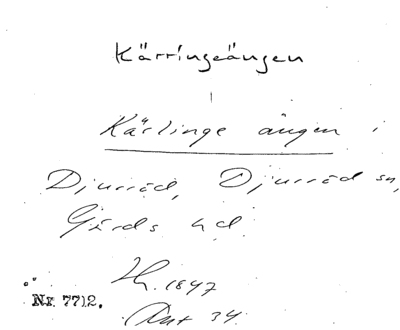 Kärringeängen
Kärlinge ängen i
Djurröd, Djurröd sn,
Gärds hd.
1847
Nr. 7712.
Akt 34.